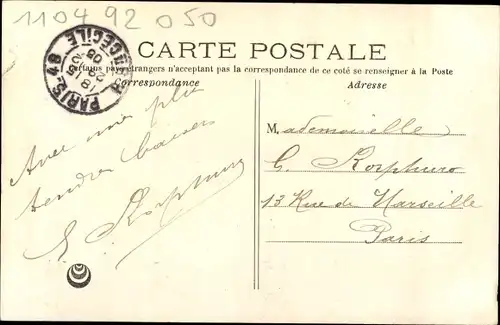 1104 92 050
CARTE POSTALE
Certains pays étrangers n'acceptant pas la correspondance de ce coté se renseigner à la Poste
Correspondance
Adresse
PARIS 84
Avec mes plus
tendres baisers
G. KorpHuro
Mademoiselle
G. Korphuro
13 Rue de Marseille
Paris